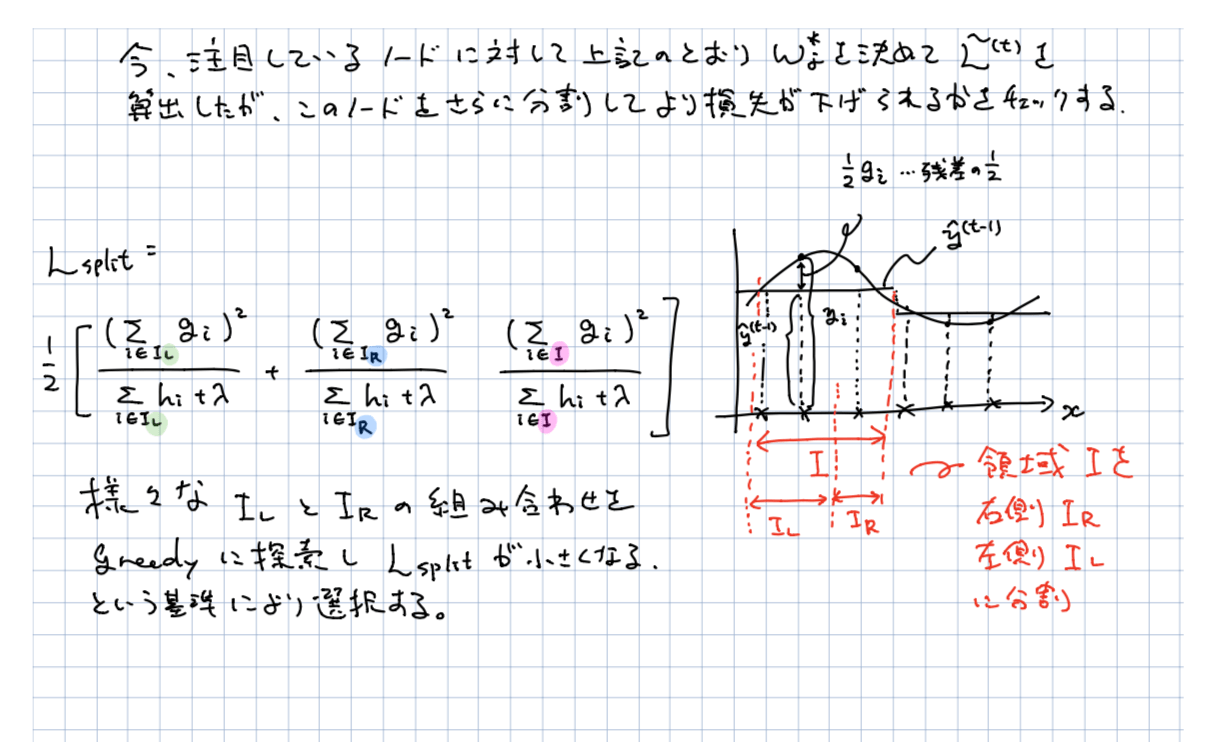 今、注目しているノードに対して上記のとおり w*j を決めて L̃(t) を
算出したが、このノードをさらに分割してより損失が下げられるかをチェックする.
1/2 gi …残差の1/2
ŷ(t-1)
Lsplit =
1/2 [ (Σ i∈IL gi)² / (Σ i∈IL hi + λ) + (Σ i∈IR gi)² / (Σ i∈IR hi + λ) (Σ i∈I gi)² / (Σ i∈I hi + λ) ]
ŷ(t-1)
yi
x
I
IL
IR
領域 I を
右側 IR
左側 IL
に分割
様々な IL と IR の組み合わせを
greedy に探索し Lsplit が小さくなる.
という基準により選択する。